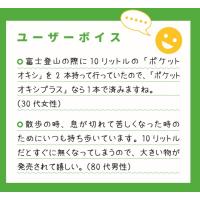 ユーザーボイス
●富士登山の際に10リットルの「ポケット
オキシ」を2本持って行っていたので、「ポケット
オキシプラス」なら1本で済みますね。
(30代女性)
●散歩の時、息が切れて苦しくなった時の
ためにいつも持ち歩いています。10リットル
だとすぐに無くなってしまうので、大きい物が
発売されて嬉しい。(80代男性)